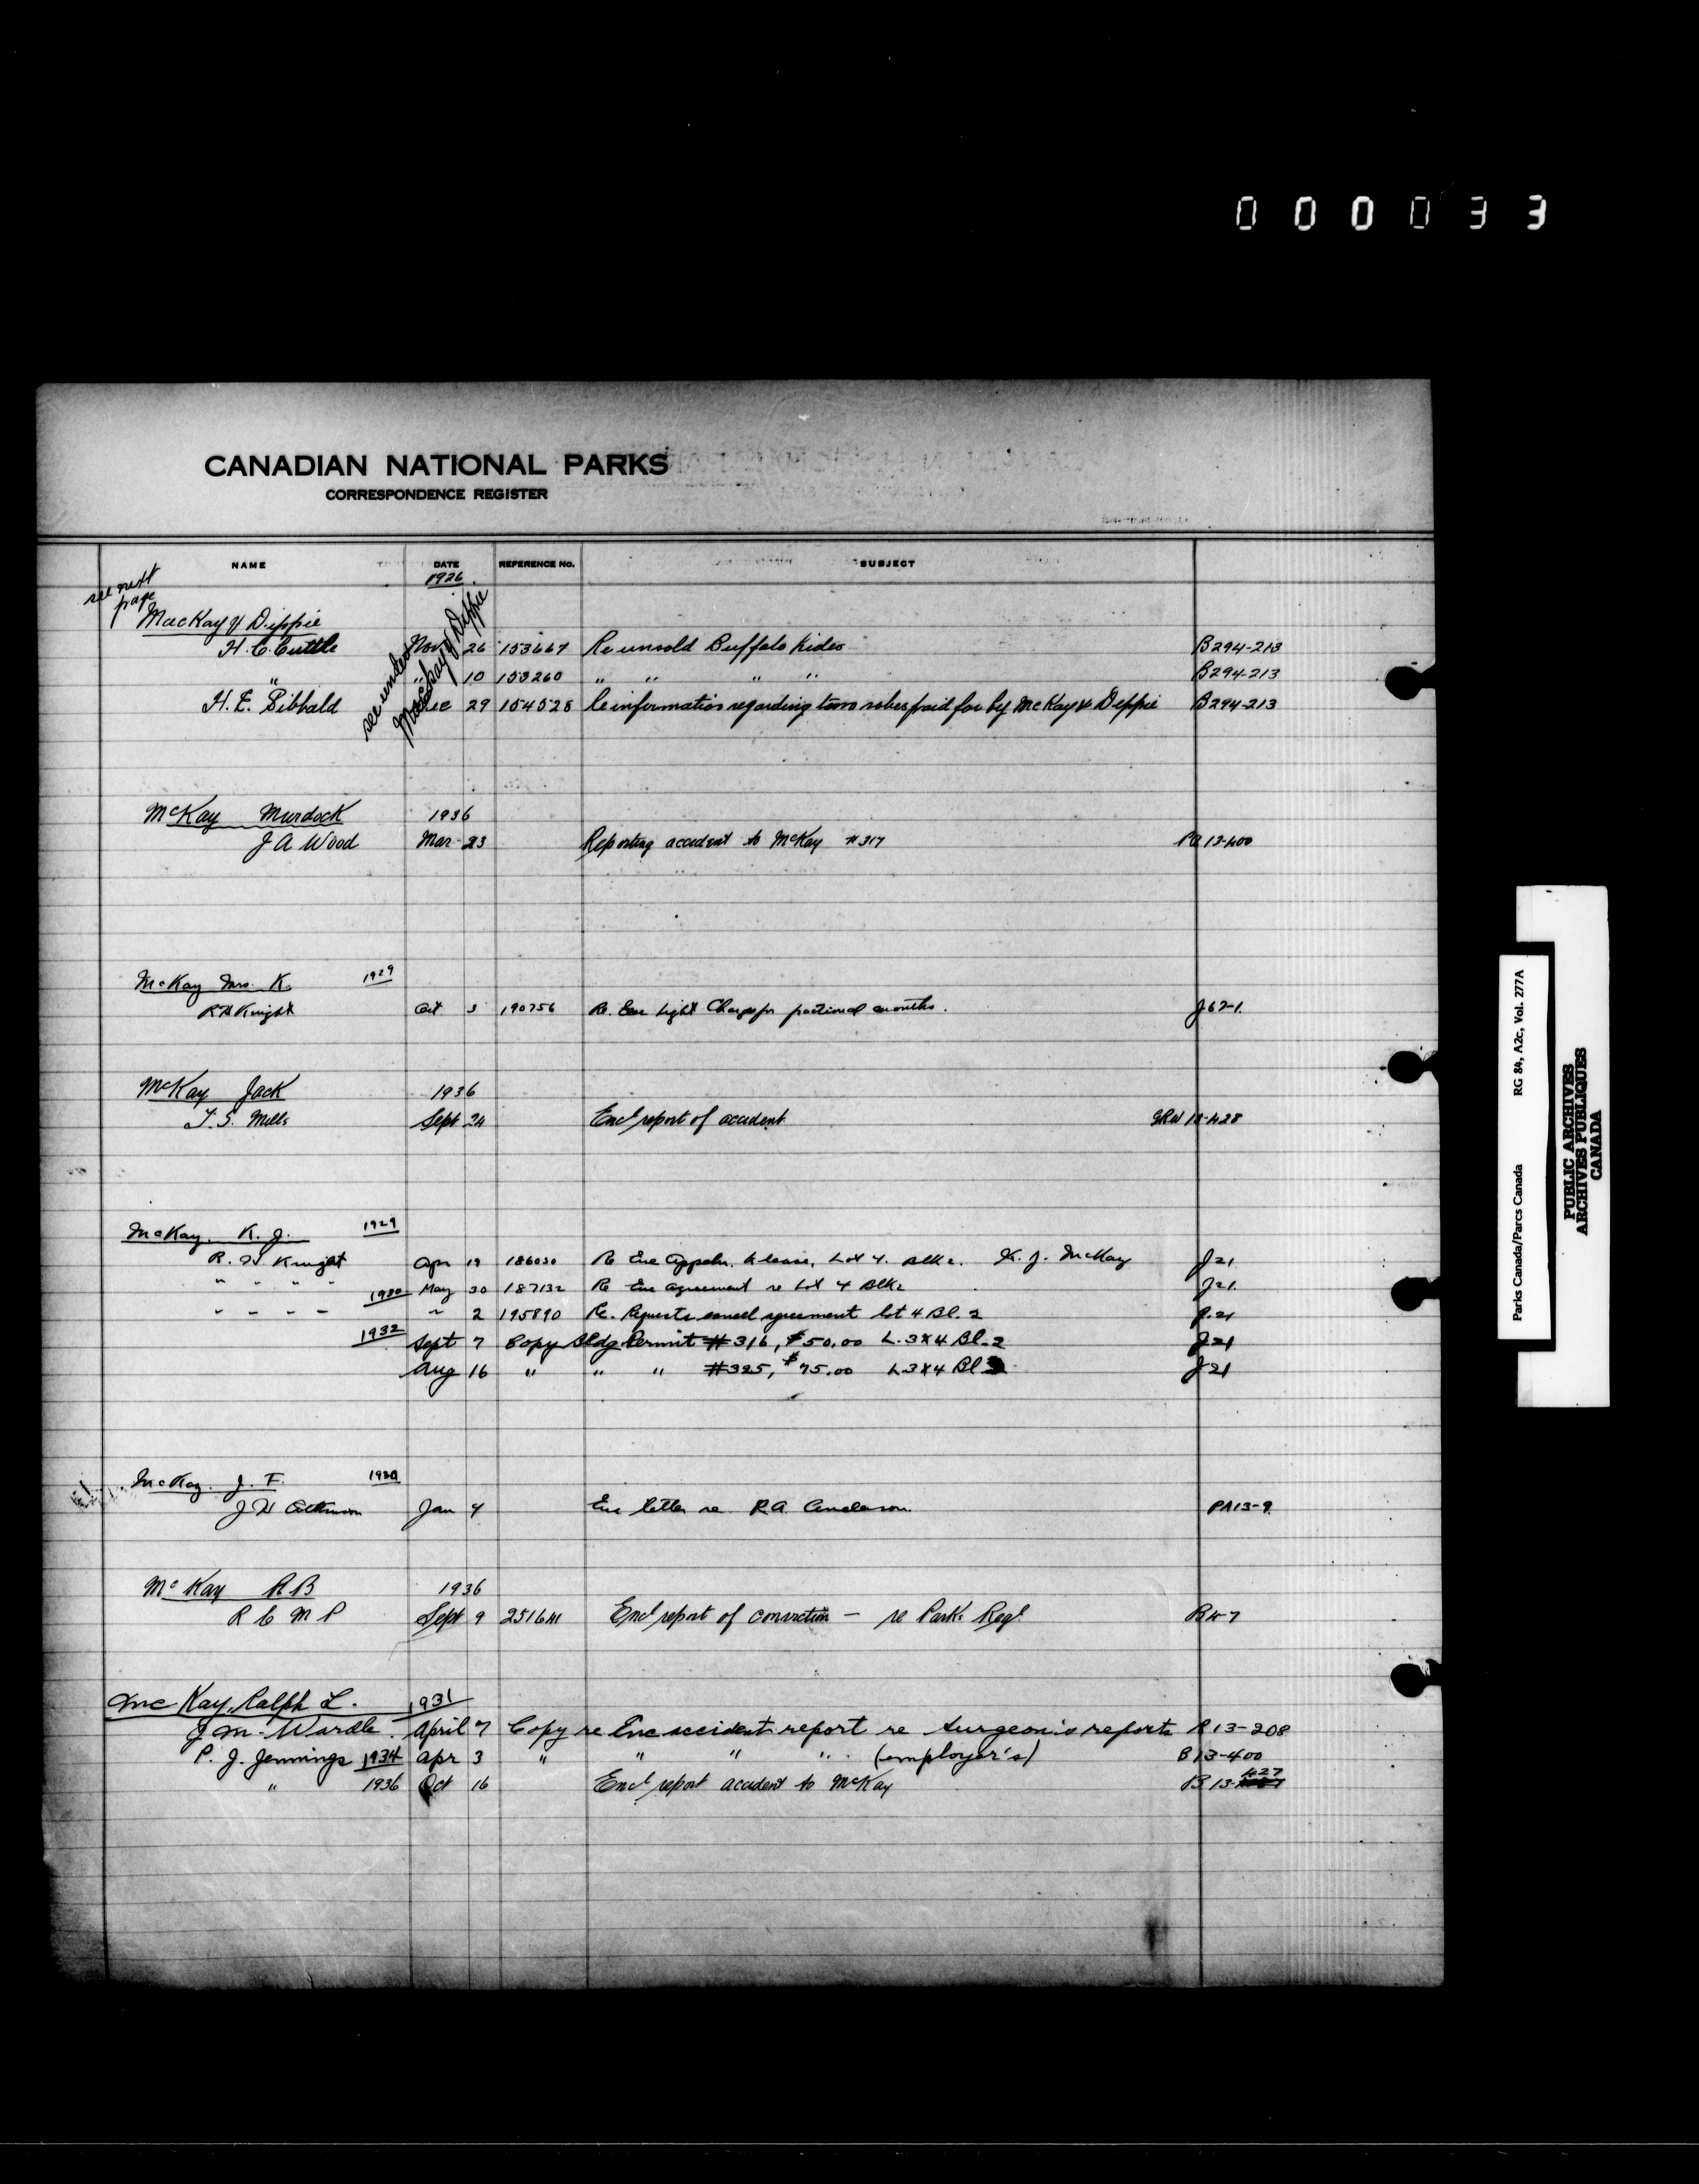 000033
CANADIAN NATIONAL PARKS
CORRESPONDENCE REGISTER
NAME DATE REFERENCE No. SUBJECT
1926
see next
page
MacKay & Dippie
see under
MacKay & Dippie
H. C. Cuttle Nov 26 153667 Re unsold Buffalo hides B294-213
" " 10 153260 " " " " B294-213
H. E. Sibbald Dec 29 154528 Re information regarding two robes paid for by McKay & Dippie B294-213
McKay Murdock 1936
J A Wood Mar 23 Reporting accident to McKay #317 13-400
McKay Mrs. K. 1929
R H Knight Oct 3 190756 Re. Enc Light Charges for fractional months. J62-1.
McKay Jack 1936
T. S. Mills Sept 24 Encl report of accident 428
McKay. K. J. 1929
R. H Knight Apr 19 186030 Re Enc Appln. to lease, Lot 4. Blk 2. K. J. McKay J21.
" " " " May 30 187132 Re Enc agreement re Lot 4 Blk 2 J21.
1930
" " " " " 2 195890 Re. Requests cancel agreement lot 4 Bl. 2 J.21
1932 Sept 7 Copy Bldg Permit #316, $50.00 L. 3 & 4 Bl. 2 J21
Aug 16 " " " #325, $75.00 L 3 & 4 Bl J21
McKay. J. F.
J H Atkinson Jan 4 Enc letter re R.A. Anderson PA13-9.
McKay R B 1936
R C M P Sept 9 Encl report of conviction — re Park Regl. B4-7
McKay, Ralph L. 1931
J. M. Wardle. April 7 Copy re Enc accident report re Surgeon's reports R13-208
P. J. Jennings 1934 Apr 3 " " " " (employer's) B13-400
" 1936 Oct 16 Encl report accident to McKay B13-427
Parks Canada/Parcs Canada RG 84, A2c, Vol. 277A
PUBLIC ARCHIVES
ARCHIVES PUBLIQUES
CANADA